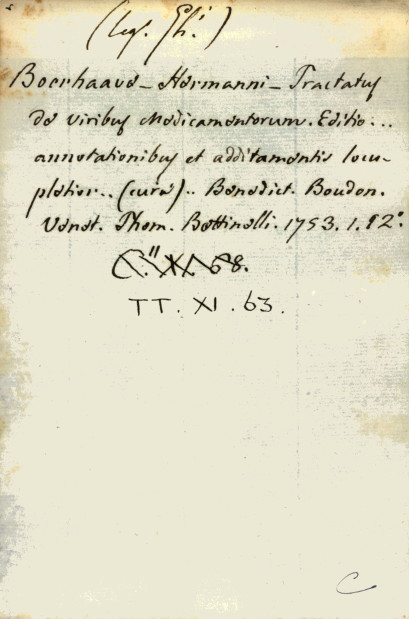 (leg. Gh.)
Boerhaave - Hermanni - Tractatus
de viribus Medicamentorum. Editio...
annotationibus et additamentis locu-
pletior.. (cura).. Benedict. Boudon.
Venet. Thom. Bettinelli. 1753. 1. 12°.
C." XI. 68.
TT. XI. 63.
C